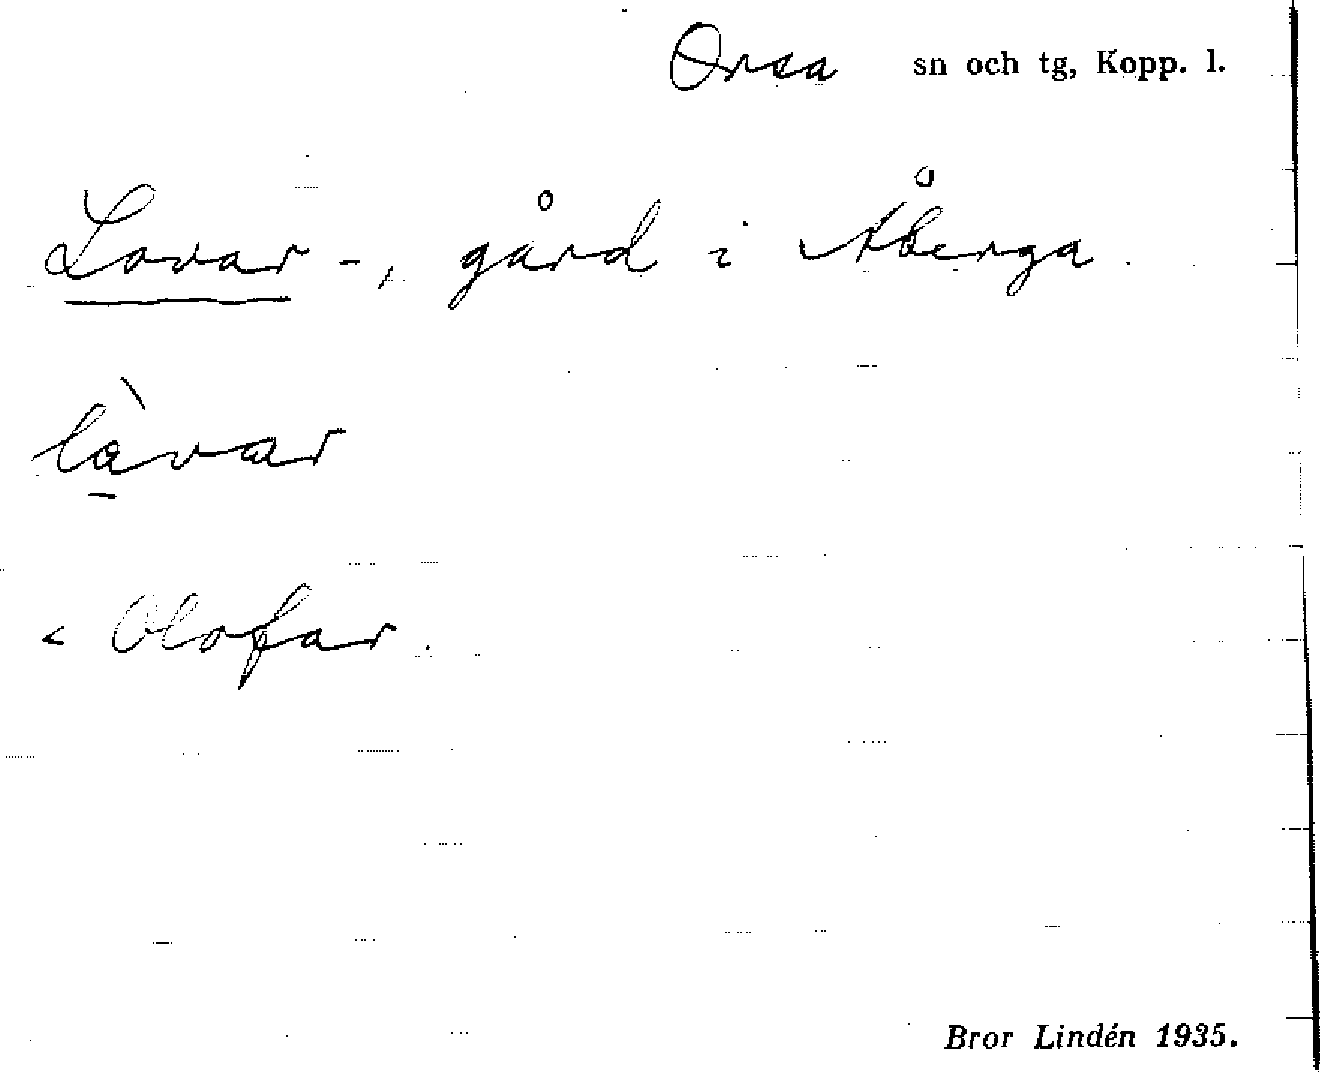 Orsa sn och tg, Kopp. l.
Lovar -, gård i Åberga.
làvar
< Olofar.
Bror Lindén 1935.